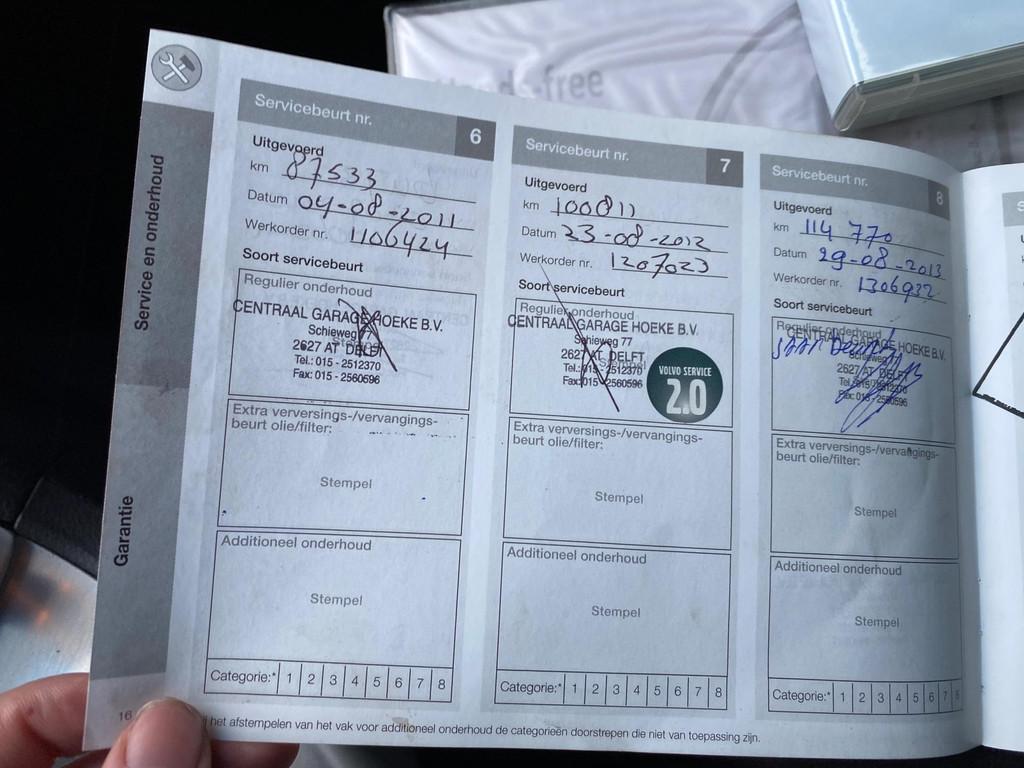 Service en onderhoud
Garantie
Servicebeurt nr. 6
Uitgevoerd
km 87533
Datum 04-08-2011
Werkorder nr. 1106424
Soort servicebeurt
Regulier onderhoud
CENTRAAL GARAGE HOEKE B.V.
Schieweg 77
2627 AT DELFT
Tel.: 015 - 2512370
Fax: 015 - 2560596
Extra verversings-/vervangings-
beurt olie/filter:
Stempel
Additioneel onderhoud
Stempel
Categorie:* 1 2 3 4 5 6 7 8
Servicebeurt nr. 7
Uitgevoerd
km 100811
Datum 23-08-2012
Werkorder nr. 1207023
Soort servicebeurt
Regulier onderhoud
CENTRAAL GARAGE HOEKE B.V.
Schieweg 77
2627 AT DELFT
Tel.: 015 - 2512370
Fax: 015 - 2560596
VOLVO SERVICE
2.0
Extra verversings-/vervangings-
beurt olie/filter:
Stempel
Additioneel onderhoud
Stempel
Categorie:* 1 2 3 4 5 6 7 8
Servicebeurt nr. 8
Uitgevoerd
km 114 770
Datum 29-08-2013
Werkorder nr. 1306932
Soort servicebeurt
Regulier onderhoud
CENTRAAL GARAGE HOEKE B.V.
Schieweg
2627 AT DELFT
Tel.: 015 - 2512370
Fax: 015 - 2560596
Extra verversings-/vervangings-
beurt olie/filter:
Stempel
Additioneel onderhoud
Stempel
Categorie:* 1 2 3 4 5 6 7 8
16
het afstempelen van het vak voor additioneel onderhoud de categorieën doorstrepen die niet van toepassing zijn.